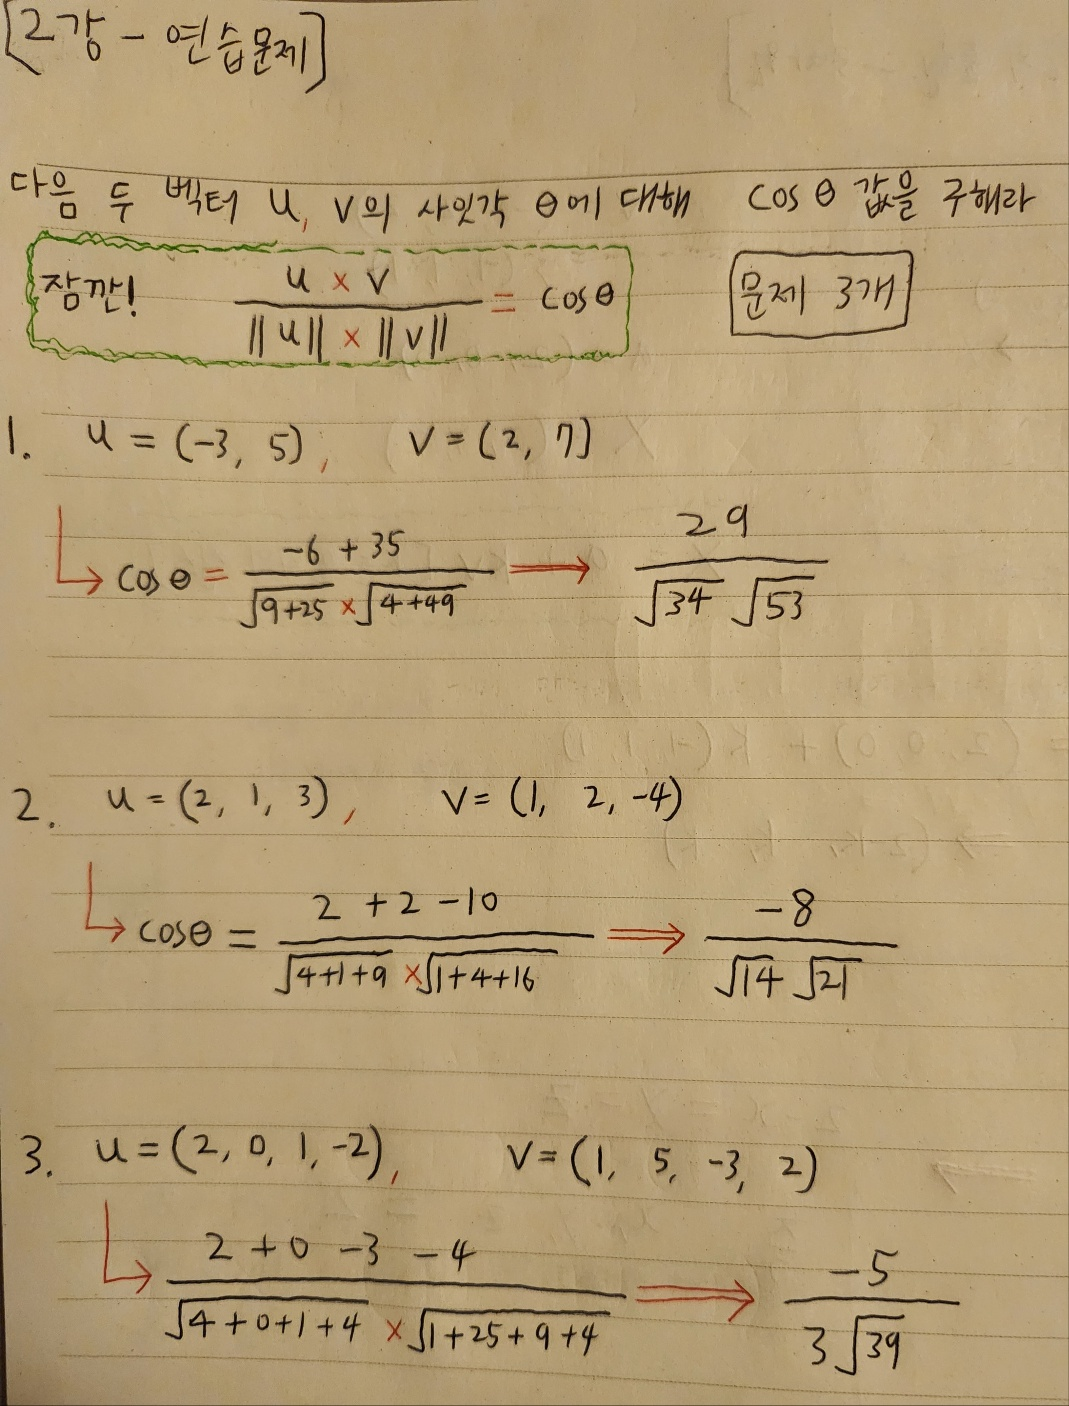 [2강 - 연습문제]
다음 두 벡터 u, v의 사잇각 θ에 대해 cos θ 값을 구해라
잠깐! u × v / ||u|| × ||v|| = cos θ
문제 3개
1. u = (-3, 5), v = (2, 7)
cos θ = -6 + 35 / √9+25 × √4+49 → 29 / √34 √53
2. u = (2, 1, 3), v = (1, 2, -4)
cosθ = 2 + 2 - 10 / √4+1+9 × √1+4+16 ⇒ -8 / √14 √21
3. u = (2, 0, 1, -2), v = (1, 5, -3, 2)
2 + 0 - 3 - 4 / √4+0+1+4 × √1+25+9+4 ⇒ -5 / 3√39